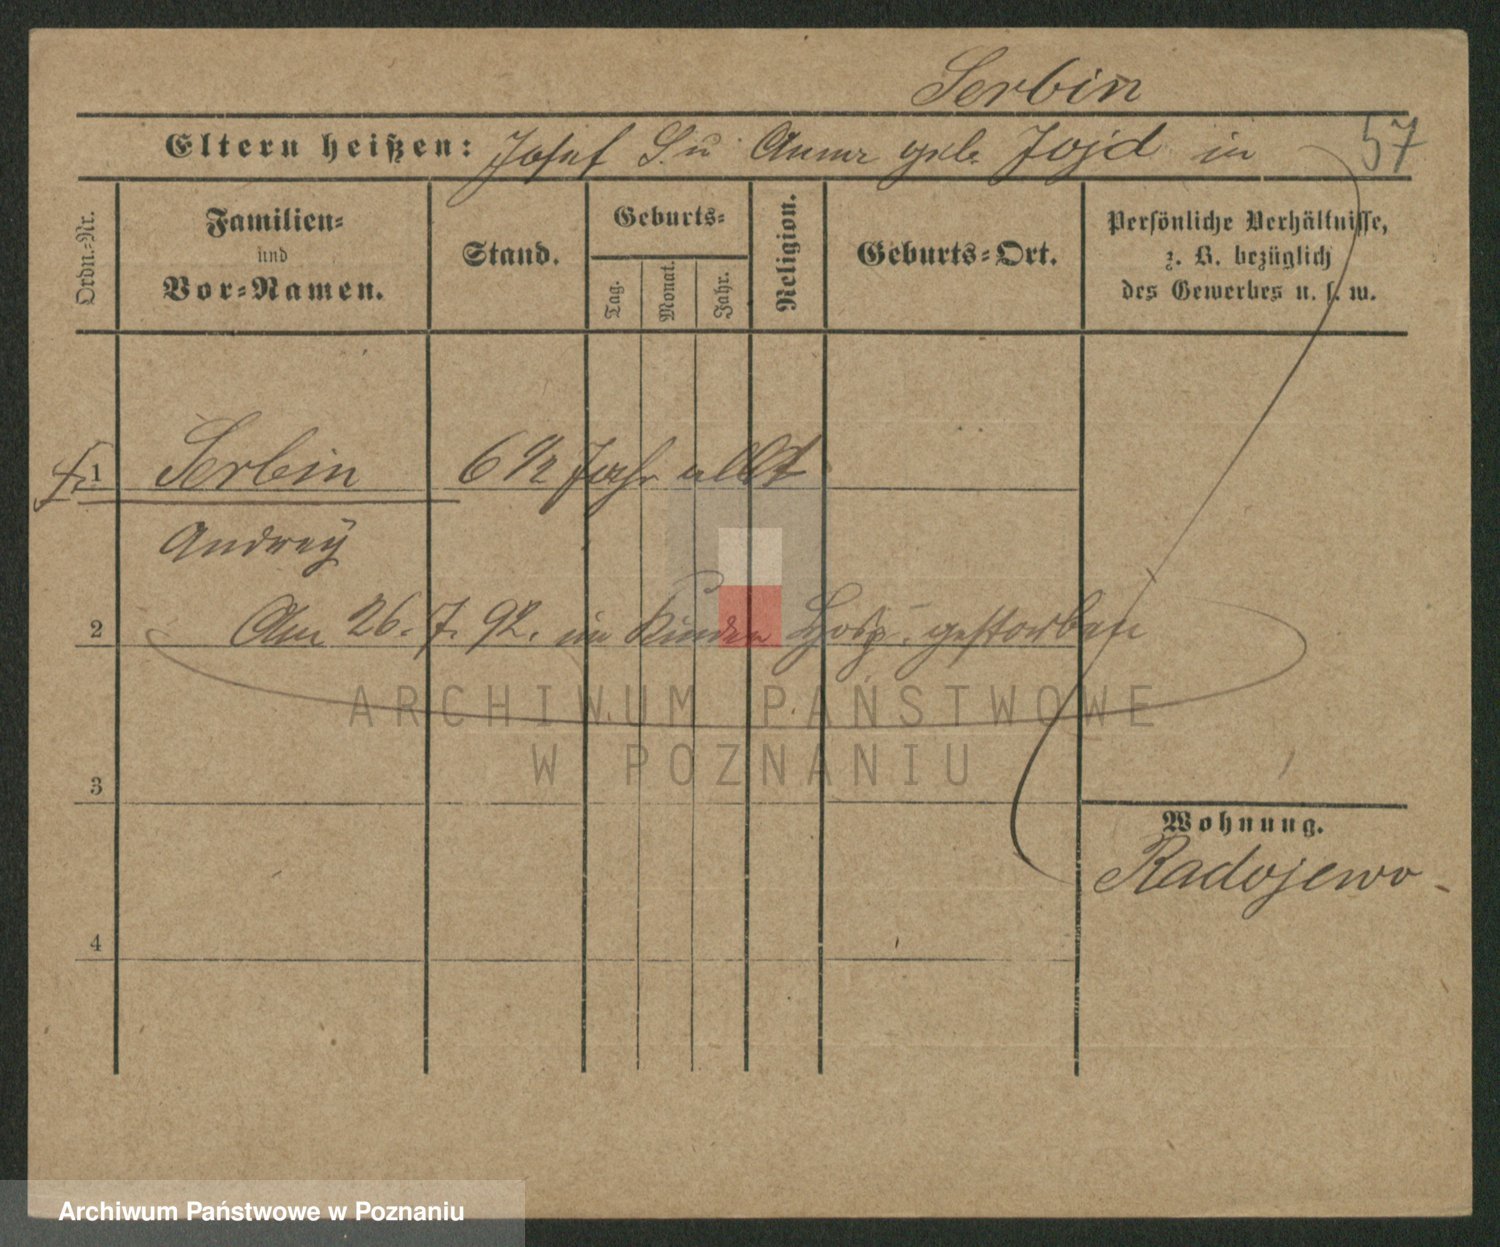 Serbin
Eltern heißen: Josef S. u Anna geb. Jojd in 57
Ordn.-Nr.
Familien-
und
Vor-Namen.
Stand.
Geburts-
Tag.
Monat.
Jahr.
Religion.
Geburts-Ort.
Persönliche Verhältnisse,
z. B. bezüglich
des Gewerbes u. s. w.
1 Serbin 6 1/2 Jahr allt
Andrey
2 Am 26. 7. 92. im Kinder Hosp. gestorben
ARCHIWUM PAŃSTWOWE
W POZNANIU
3
Wohnung.
Radojewo
4
Archiwum Państwowe w Poznaniu